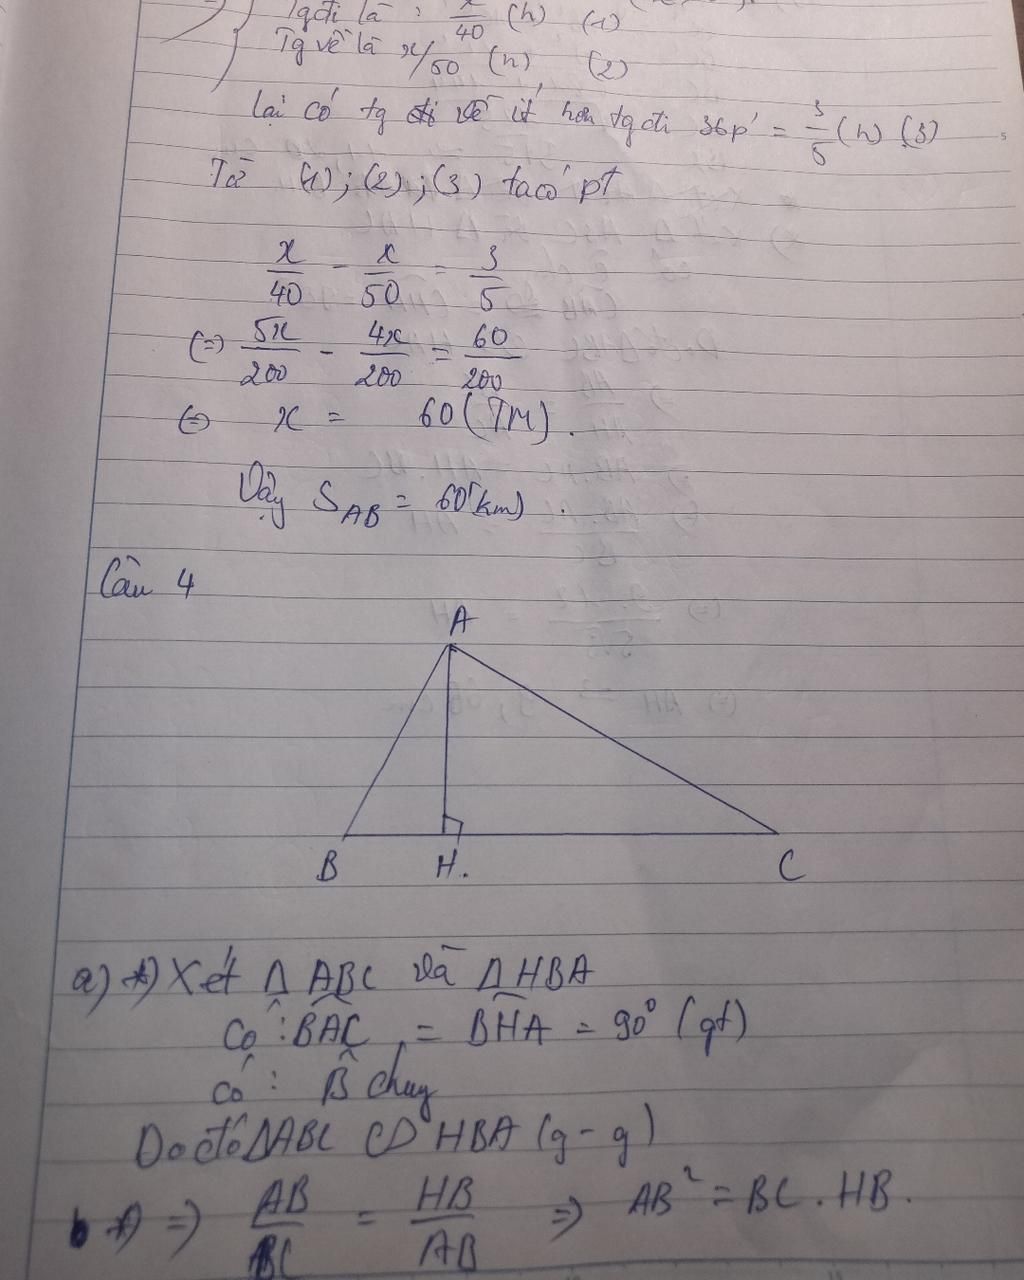 Tgđi là : x/40 (h) (1)
Tg về là x/50 (h) (2)
lại có tg về ít hơn tg đi 36p' = 3/5 (h) (3)
Từ (1); (2); (3) ta có pt
x/40 - x/50 = 3/5
(=) 5x/200 - 4x/200 = 60/200
(=) x = 60 (TM).
Vậy S_AB = 60 (km).
Câu 4
A
B H. C
a) *) Xét Δ ABC và Δ HBA
Có : BAC = BHA = 90° (gt)
có : B chug
Do đó ΔABC ∽ HBA (g-g)
b *) => AB/BC = HB/AB => AB² = BC . HB.